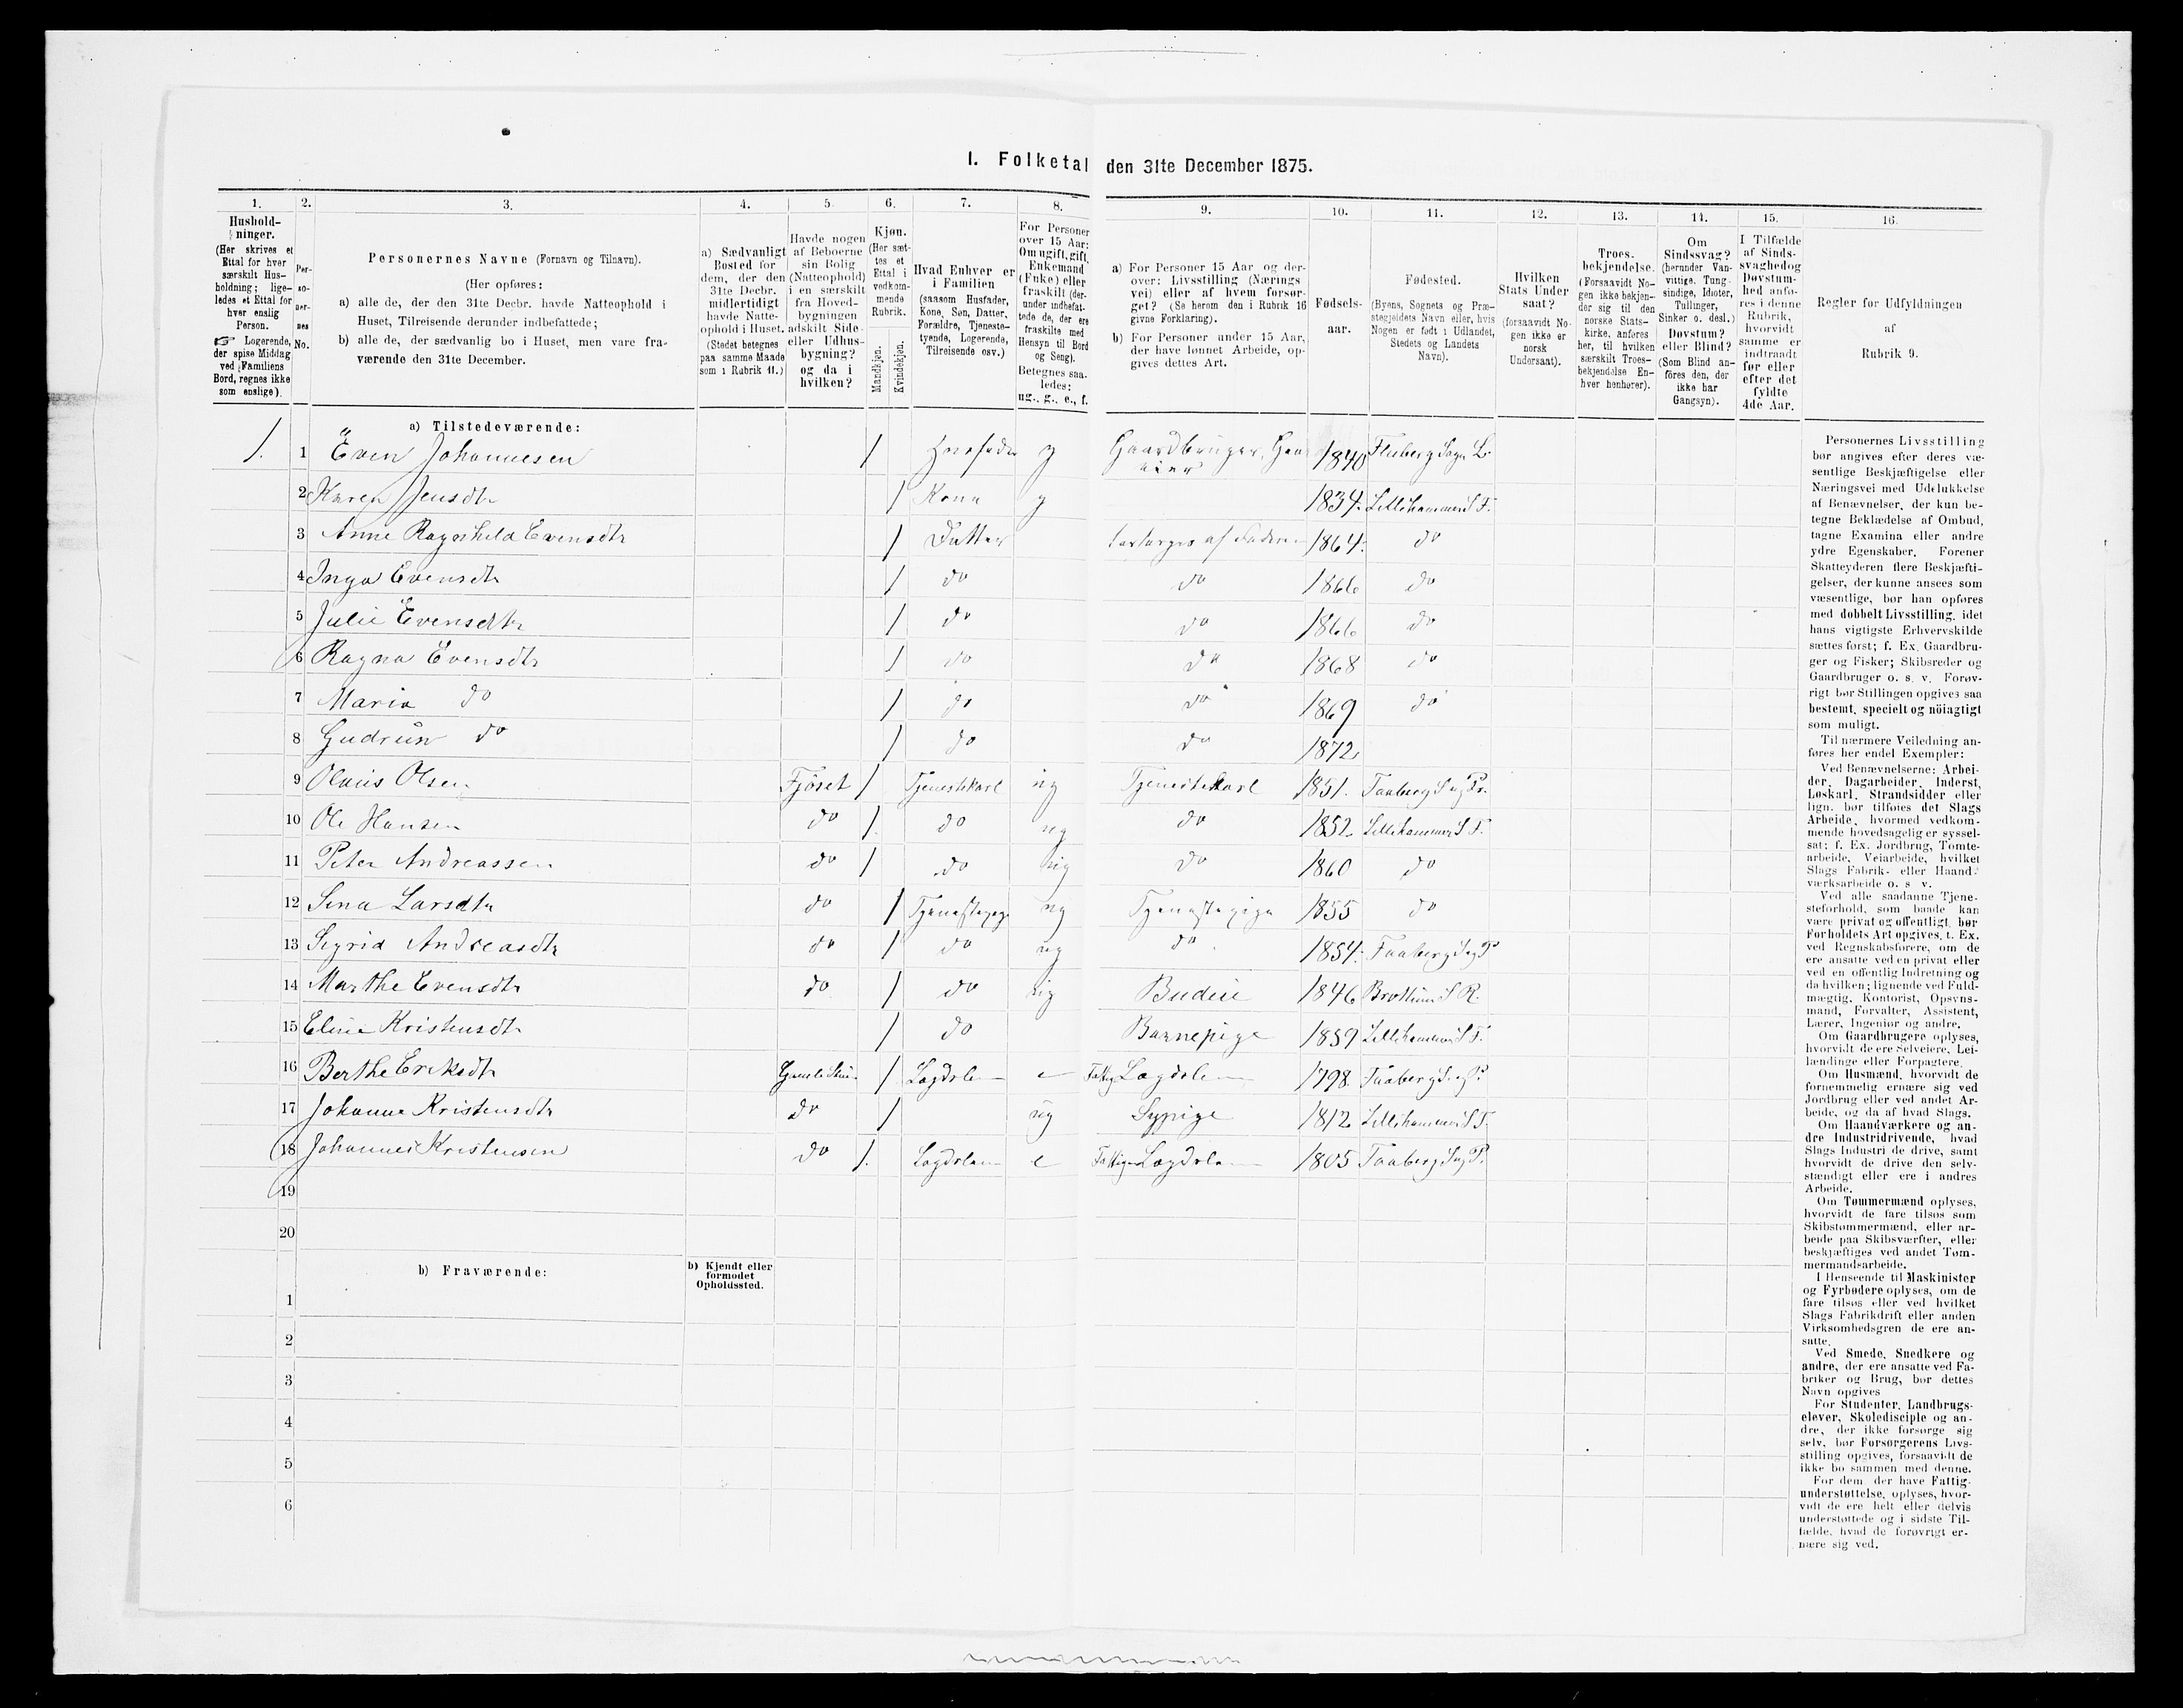 I. Folketal den 31te December 1875.
1. 2. 3. 4. 5. 6. 7. 8. 9. 10. 11. 12. 13. 14. 15. 16.
Hushold-
ninger.
(Her skrives et
Ettal for hver
særskilt Hus-
holdning; lige-
ledes et Ettal for
hver enslig
Person.
☞ Logerende,
der spise Middag
ved Familiens
Bord, regnes ikke
som enslige).
Per-
so-
ner-
nes
No.
Personernes Navne (Fornavn og Tilnavn).
(Her opføres:
a) alle de, der den 31te Decbr. havde Natteophold i
Huset, Tilreisende derunder indbefattede;
b) alle de, der sædvanlig bo i Huset, men vare fra-
værende den 31te December.
a) Sædvanligt
Bosted for
dem, der den
31te Decbr.
midlertidigt
havde Natte-
ophold i Huset.
(Stedet betegnes
paa samme Maade
som i Rubrik 11.)
Havde nogen
af Beboerne
sin Bolig
(Natteophold)
i en særskilt
fra Hoved-
bygningen
adskilt Side-
eller Udhus-
bygning?
og da i
hvilken?
Kjøn.
(Her sæt-
tes et
Ettal i
vedkom-
mende
Rubrik.
Mandkjøn.
Kvindekjøn.
Hvad Enhver er
i Familien
(saasom Husfader,
Kone, Søn, Datter,
Forældre, Tjeneste-
tyende, Logerende,
Tilreisende osv.)
For Personer
over 15 Aar:
Om ugift, gift,
Enkemand
(Enke) eller
fraskilt (der-
under indbefat-
tede de, der ere
fraskilte med
Hensyn til Bord
og Seng).
Betegnes saa-
ledes:
ug., g., e., f.
a) For Personer 15 Aar og der-
over: Livsstilling (Nærings
vei) eller af hvem forsør-
get? (Se herom den i Rubrik 16
givne Forklaring).
b) For Personer under 15 Aar,
der have lønnet Arbeide, op-
gives dettes Art.
Fødsels-
aar.
Fødested.
(Byens, Sognets og Præ-
stegjeldets Navn eller, hvis
Nogen er født i Udlandet,
Stedets og Landets
Navn).
Hvilken
Stats Under
saat?
(forsaavidt No-
gen ikke er
norsk
Undersaat).
Troes-
bekjendelse.
(Forsaavidt No-
gen ikke bekjen-
der sig til den
norske Stats-
kirke, anføres
her, til hvilken
særskilt Troes-
bekjendelse En-
hver henhører).
Om
Sindssvag?
(herunder Van-
vittige, Tung-
sindige, Idioter,
Tullinger,
Sinker o. desl.)
Døvstum?
eller Blind?
(Som Blind an-
føres den, der
ikke har
Gangsyn).
I Tilfælde
af Sinds-
svaghed og
Døvstum-
hed anfø-
res i denne
Rubrik,
hvorvidt
samme er
indtraadt
før eller
efter det
fyldte
4de Aar.
Regler for Udfyldningen
af
Rubrik 9.
a) Tilstedeværende:
1. 1 Even Johannesen 1 Husfader g Gaardbruger, 1840 Fluberg Sogn L.
2 Karen Jensdtr 1 Kone g 1834. Lillehammer S F.
3 Anne Ragnhild Evensdtr 1 Datter forsørges af Faderen 1864. do
4 Inga Evensdtr 1 do do 1866 do
5 Julie Evensdtr 1 do do 1866 do
6 Ragna Evensdtr 1 do do 1868 do
7 Maria do 1 do do 1869 do
8 Gudrun do 1 do do 1872
9 Olaus Olsen Fjöset 1 Tjenestekarl ug Tjenestekarl 1851. Faaberg S og Pr.
10 Ole Hansen do 1. do ug do 1852 Lillehammer S F.
11 Peter Andreassen do 1 do ug do 1860 do
12 Sina Larsdtr do 1 Tjenestepige ug Tjenestepige 1855 do
13 Sigrid Andreasdtr do 1 do ug do 1854. Faaberg S og P
14 Marthe Evensdtr do 1 do ug Budeie 1846 Brøttum S R.
15 Eline Kristensdtr 1 do Barnepige 1859 Lillehammer S F.
16 Berthe Eriksdtr 1 Lægdslem e Fattig Lægdslem 1798 Faaberg S og P.
17 Johanne Kristensdtr do 1 ug Sypige 1812 Lillehammer S F.
18 Johannes Kristensen do 1. Lægdslem e Lægdslem 1805 Faaberg S og P.
19
20
b) Fraværende:
b) Kjendt eller
formodet
Opholdssted.
1
2
3
4
5
6
Personernes Livsstilling
bør angives efter deres væ-
sentlige Beskjæftigelse eller
Næringsvei med Udelukkelse
af Benævnelser, der kun be-
tegne Beklædelse af Ombud,
tagne Examina eller andre
ydre Egenskaber. Forener
Skatteyderen flere Beskjæfti-
gelser, der kunne ansees som
væsentlige, bør han opføres
med dobbelt Livsstilling, idet
hans vigtigste Erhvervskilde
sættes først; f. Ex. Gaardbru-
ger og Fisker; Skibsreder og
Gaardbruger o. s. v. Forøv-
rigt bør Stillingen opgives saa
bestemt, specielt og nöiagtigt
som muligt.
Til nærmere Veiledning an-
føres her endel Exempler:
Ved Benævnelserne: Arbei-
der, Dagarbeider, Inderst,
Løskarl, Strandsidder eller
lign. bør tilføies det Slags
Arbeide, hvormed vedkom-
mende hovedsagelig er syssel-
sat; f. Ex. Jordbrug, Tomte-
arbeide, Veiarbeide, hvilket
Slags Fabrik- eller Haand-
værksarbeide o. s v.
Ved alle saadanne Tjene-
steforhold, som baade kan
være privat og offentligt, bør
Forholdets Art opgives, t. Ex.
ved Regnskabsførere, om de
ere ansatte ved en privat eller
ved en offentlig Indretning og
da hvilken; lignende ved Fuld-
mægtig, Kontorist, Opsyns-
mand, Forvalter, Assistent,
Lærer, Ingeniør og andre.
Om Gaardbrugere oplyses,
hvorvidt de ere Selveiere, Lei-
lændinge eller Forpagtere.
Om Husmænd, hvorvidt de
fornemmelig ernære sig ved
Jordbrug eller ved andet Ar-
beide, og da af hvad Slags.
Om Haandværkere og an-
dre Industridrivende, hvad
Slags Industri de drive, samt
hvorvidt de drive den selv-
stændigt eller ere i andres
Arbeide.
Om Tømmermænd oplyses,
hvorvidt de fare tilsøs som
Skibstømmermænd, eller ar-
beide paa Skibsværfter, eller
beskjæftiges ved andet Tøm-
mermandsarbeide.
I Henseende til Maskinister
og Fyrbødere oplyses, om de
fare tilsøs eller ved hvilket
Slags Fabrikdrift eller anden
Virksomhedsgren de ere an-
satte.
Ved Smede, Snedkere og
andre, der ere ansatte ved Fa-
briker og Brug, bør dettes
Navn opgives
For Studenter, Landbrugs-
elever, Skoledisciple og an-
dre, der ikke forsørge sig
selv, bør Forsørgerens Livs-
stilling opgives, forsaavidt de
ikke bo sammen med denne.
For dem, der have Fattig-
understøttelse, oplyses, hvor-
vidt de ere helt eller delvis
understøttede og i sidste Til-
fælde, hvad de forøvrigt er-
nære sig ved.